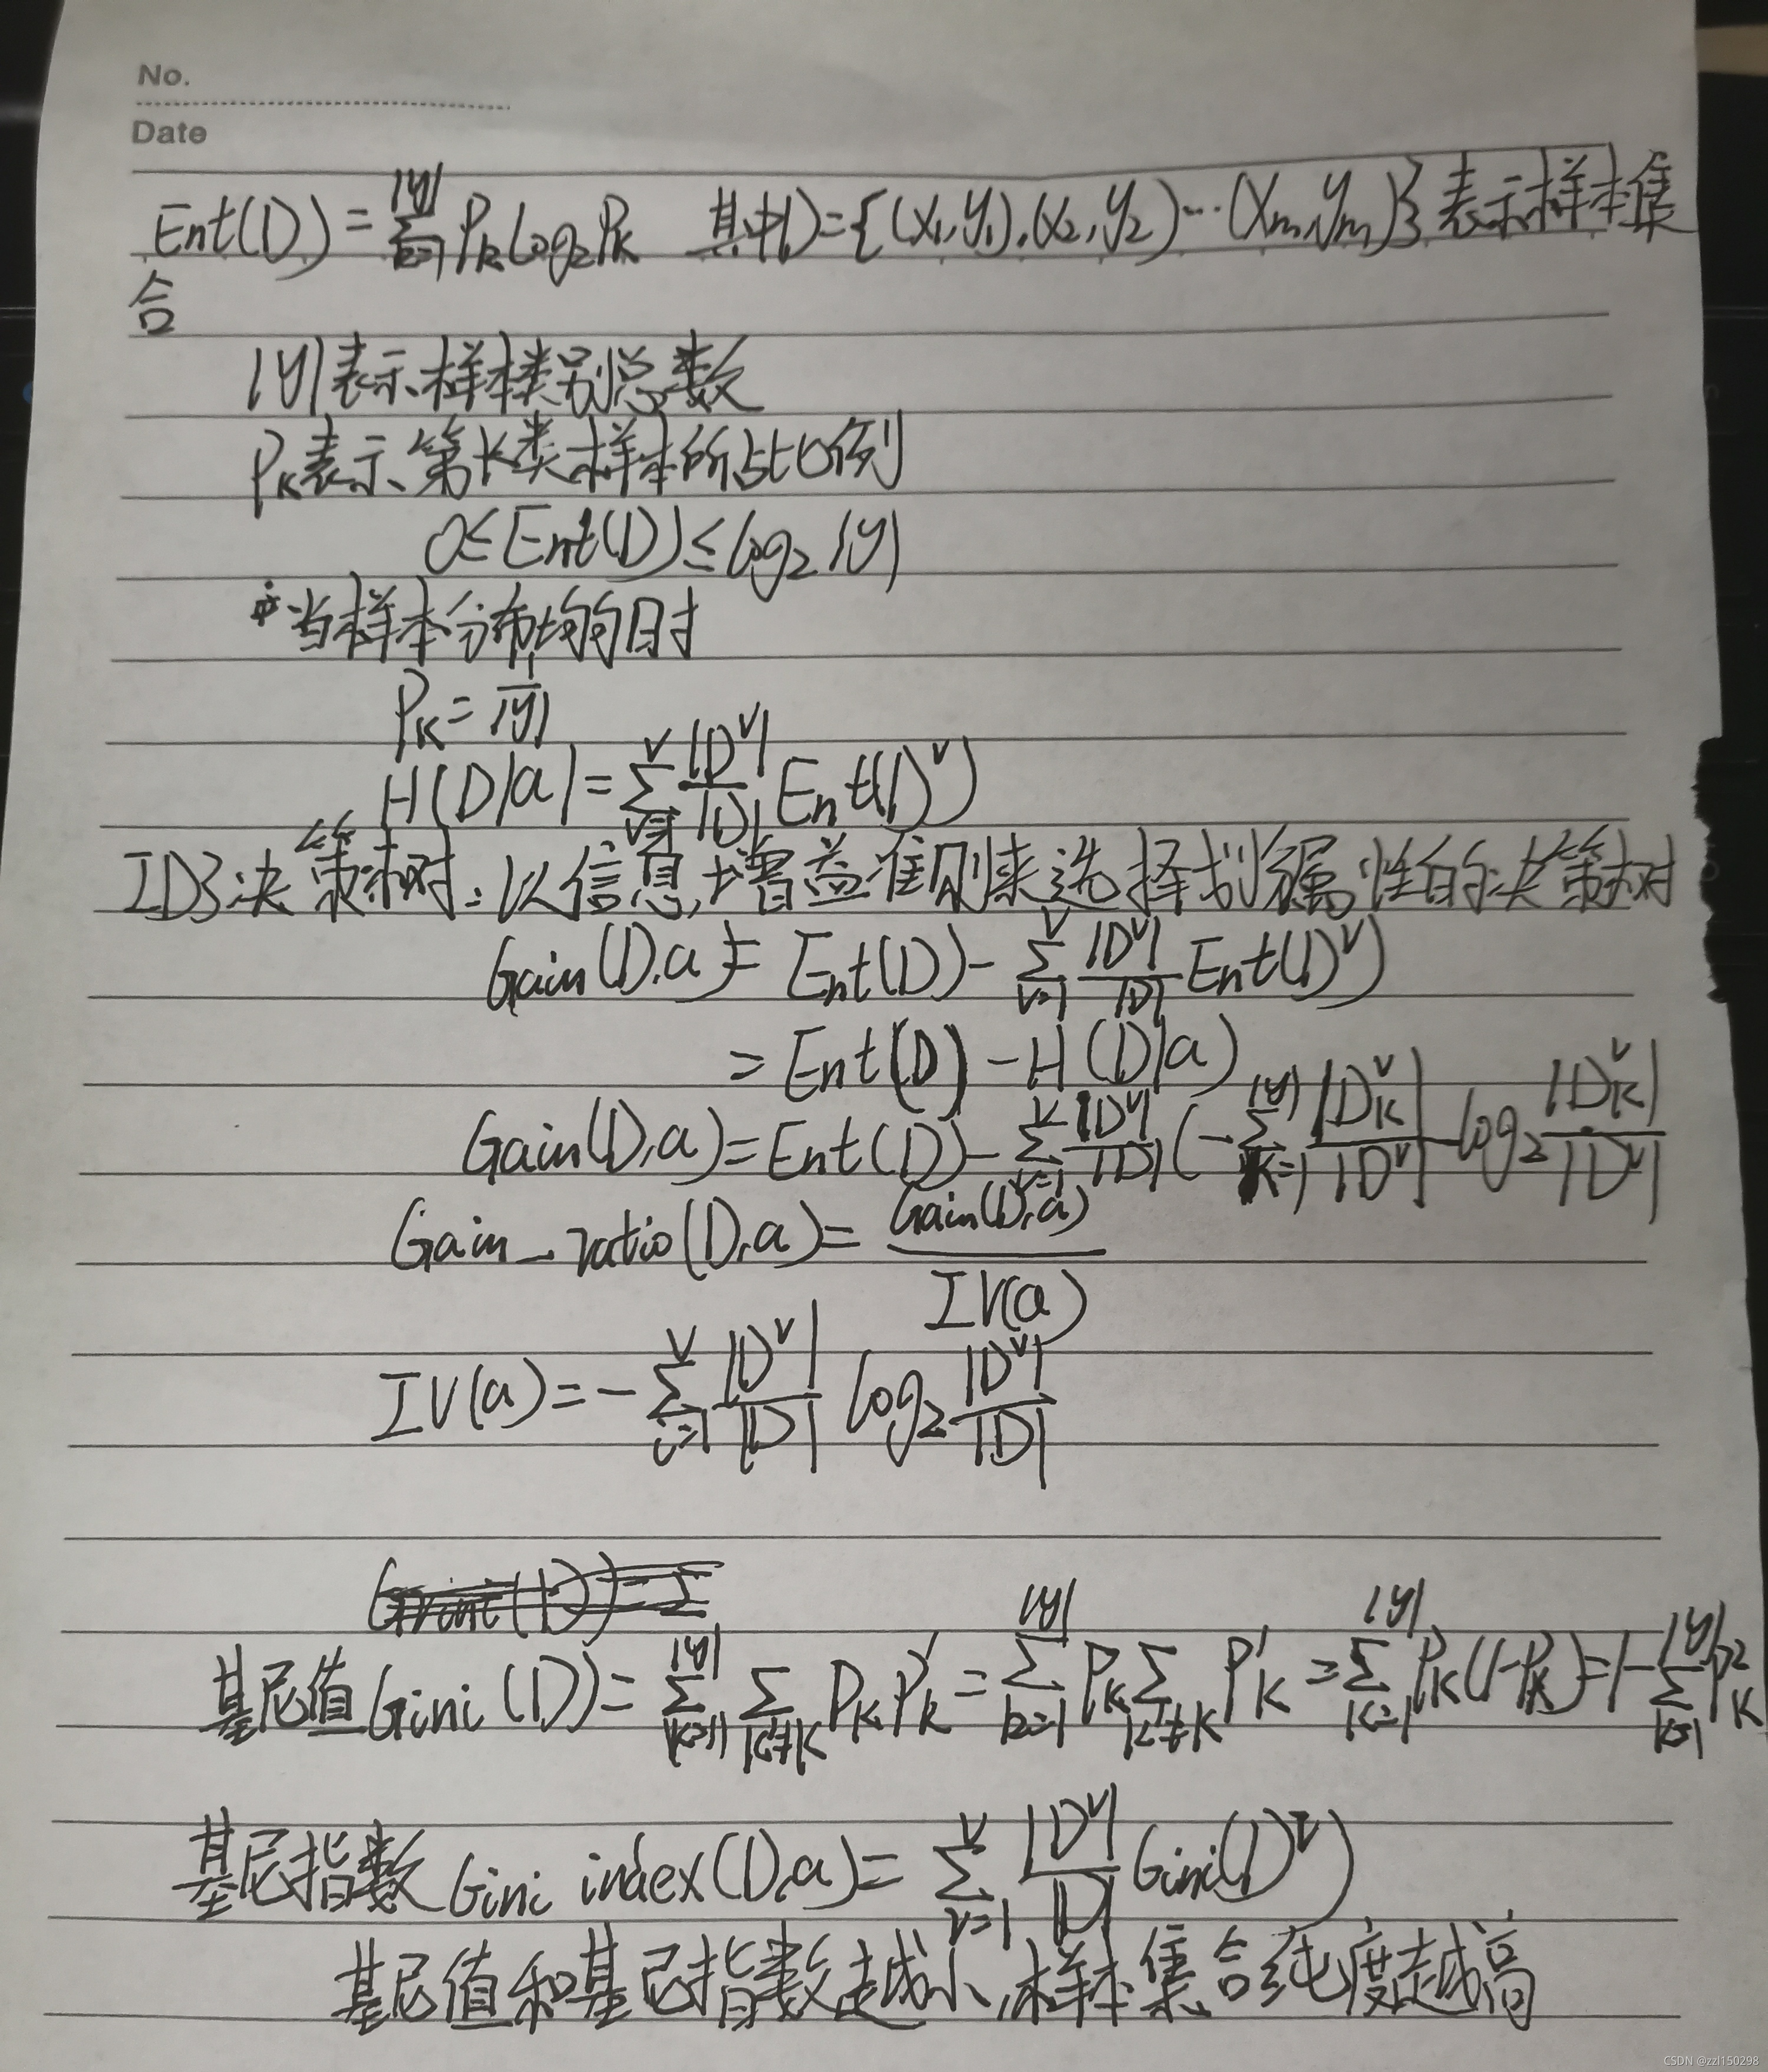 No.
Date
Ent(D) = ∑_{k=1}^{|y|} P_k log₂P_k 其中D={(x₁,y₁),(x₂,y₂)…(x_m,y_m)}表示样本集
合
|y|表示样本类别总数
P_k表示第k类样本所占比例
0≤Ent(D)≤log₂|y|
当样本分布均匀时
P_k = 1/|y|
H(D|a)=∑_{v=1}^{V} |D^v|/|D| Ent(D^v)
ID3决策树:以信息增益准则来选择划分属性的决策树
Gain(D,a)= Ent(D) - ∑_{v=1}^{V} |D^v|/|D| Ent(D^v)
= Ent(D) - H(D|a)
Gain(D,a)=Ent(D)-∑_{v=1}^{V} |D^v|/|D| (-∑_{k=1}^{|y|} |D_k^v|/|D^v| log₂ |D_k^v|/|D^v|
Gain_ratio(D,a)= Gain(D,a)/IV(a)
IV(a)=-∑_{i=1}^{V} |D^v|/|D| log₂ |D^v|/|D|
基尼值Gini(D)=∑_{k=1}^{|y|} ∑_{k'≠k} P_k P'_k = ∑_{k=1}^{|y|} P_k ∑_{k'≠k} P'_k = ∑_{k=1}^{|y|} P_k(1-P_k)=1-∑_{k=1}^{|y|} P_k²
基尼指数 Gini index(D,a)= ∑_{v=1}^{V} |D^v|/|D| Gini(D^v)
基尼值和基尼指数越小,样本集合纯度越高
CSDN @zzl150298